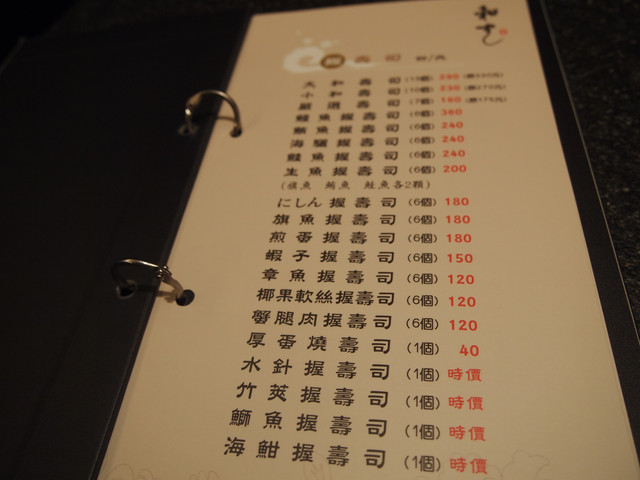 和すし
壽司
大和壽司 (13個) 290
小和壽司 (10個) 230 (原270元)
嚴選壽司 (7個) 160 (原175元)
鰻魚握壽司 (6個) 360
鮪魚握壽司 (6個) 240
海膽握壽司 (6個) 240
鮭魚握壽司 (6個) 240
生魚握壽司 (6個) 200
(旗魚 鮪魚 鮭魚各2顆)
にしん握壽司 (6個) 180
旗魚握壽司 (6個) 180
煎蛋握壽司 (6個) 180
蝦子握壽司 (6個) 150
章魚握壽司 (6個) 120
椰果軟絲握壽司 (6個) 120
蟹腿肉握壽司 (6個) 120
厚蛋燒壽司 (1個) 40
水針握壽司 (1個) 時價
竹筴握壽司 (1個) 時價
鰤魚握壽司 (1個) 時價
海鮒握壽司 (1個) 時價